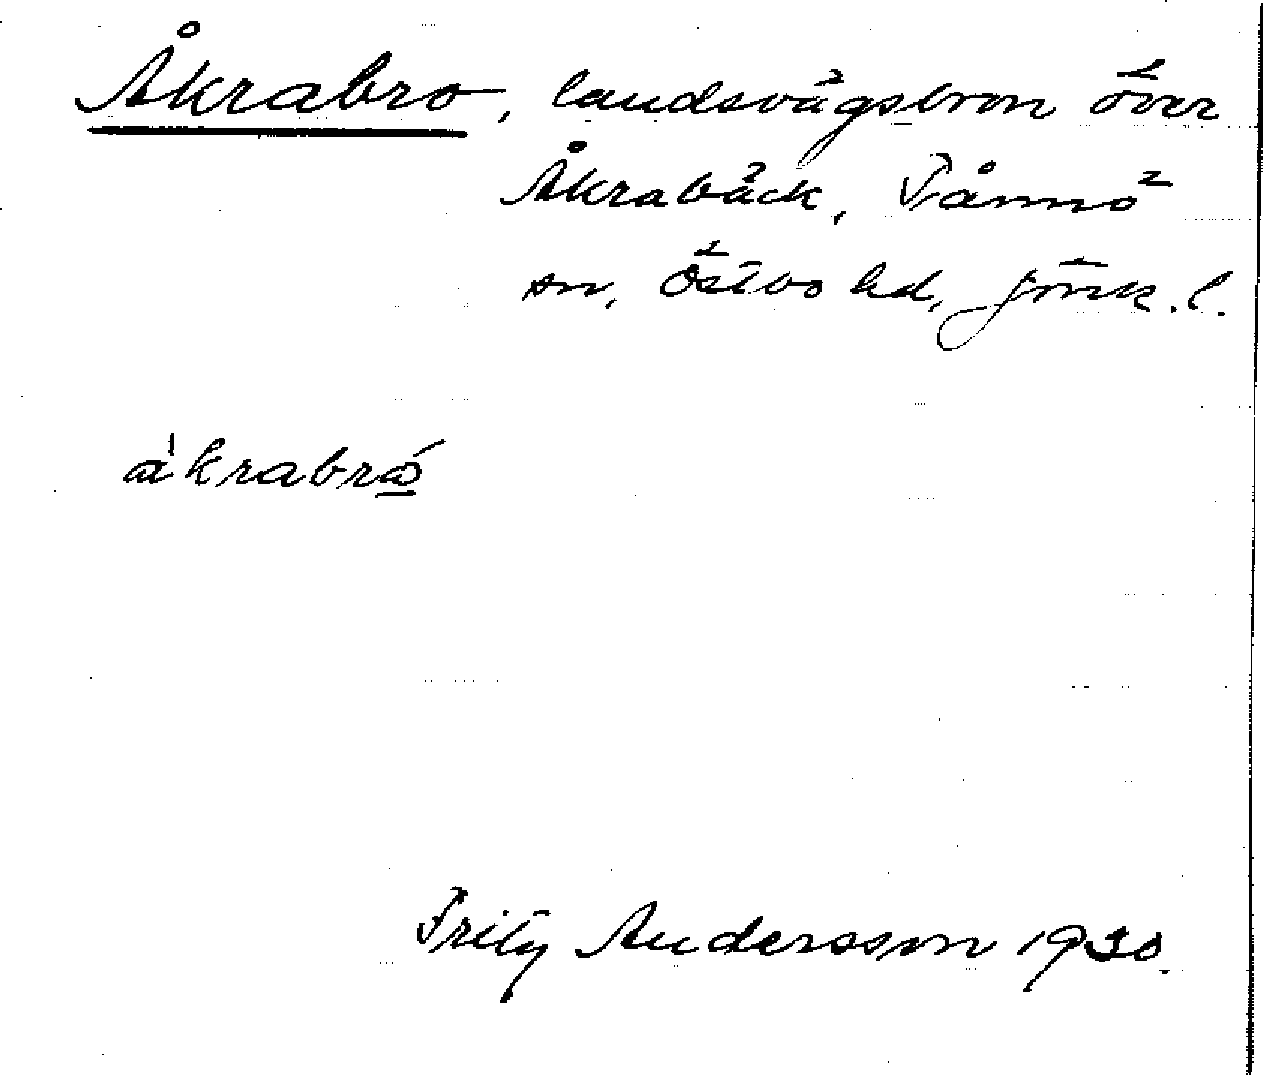 Åkrabro, landsvägsbron över
Åkrabäck, Tånnö
sn, Östbo hd, Jönk. l.
Fritz Andersson 1930.